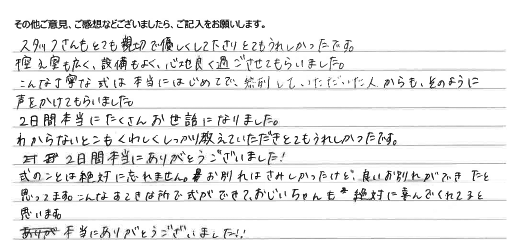 その他ご意見、ご感想などございましたら、ご記入をお願いします。
スタッフさんもとても親切で優しくして下さりとてもうれしかったです。
控え室も広く、設備もよく、心地良く過ごさせてもらいました。
こんな丁寧な式は本当にはじめてで、参列していただいた人からも、そのように
声をかけてもらいました。
2日間本当にたくさんお世話になりました。
わからないとこもくわしくしっかり教えていただきとてもうれしかったです。
2日間本当にありがとうございました!
式のことは絶対に忘れません。お別れはさみしかったけど、良いお別れができたと
思ってます。こんなすてきな所で式ができて、おじいちゃんも絶対に喜んでくれてると
思います
本当にありがとうございました!!